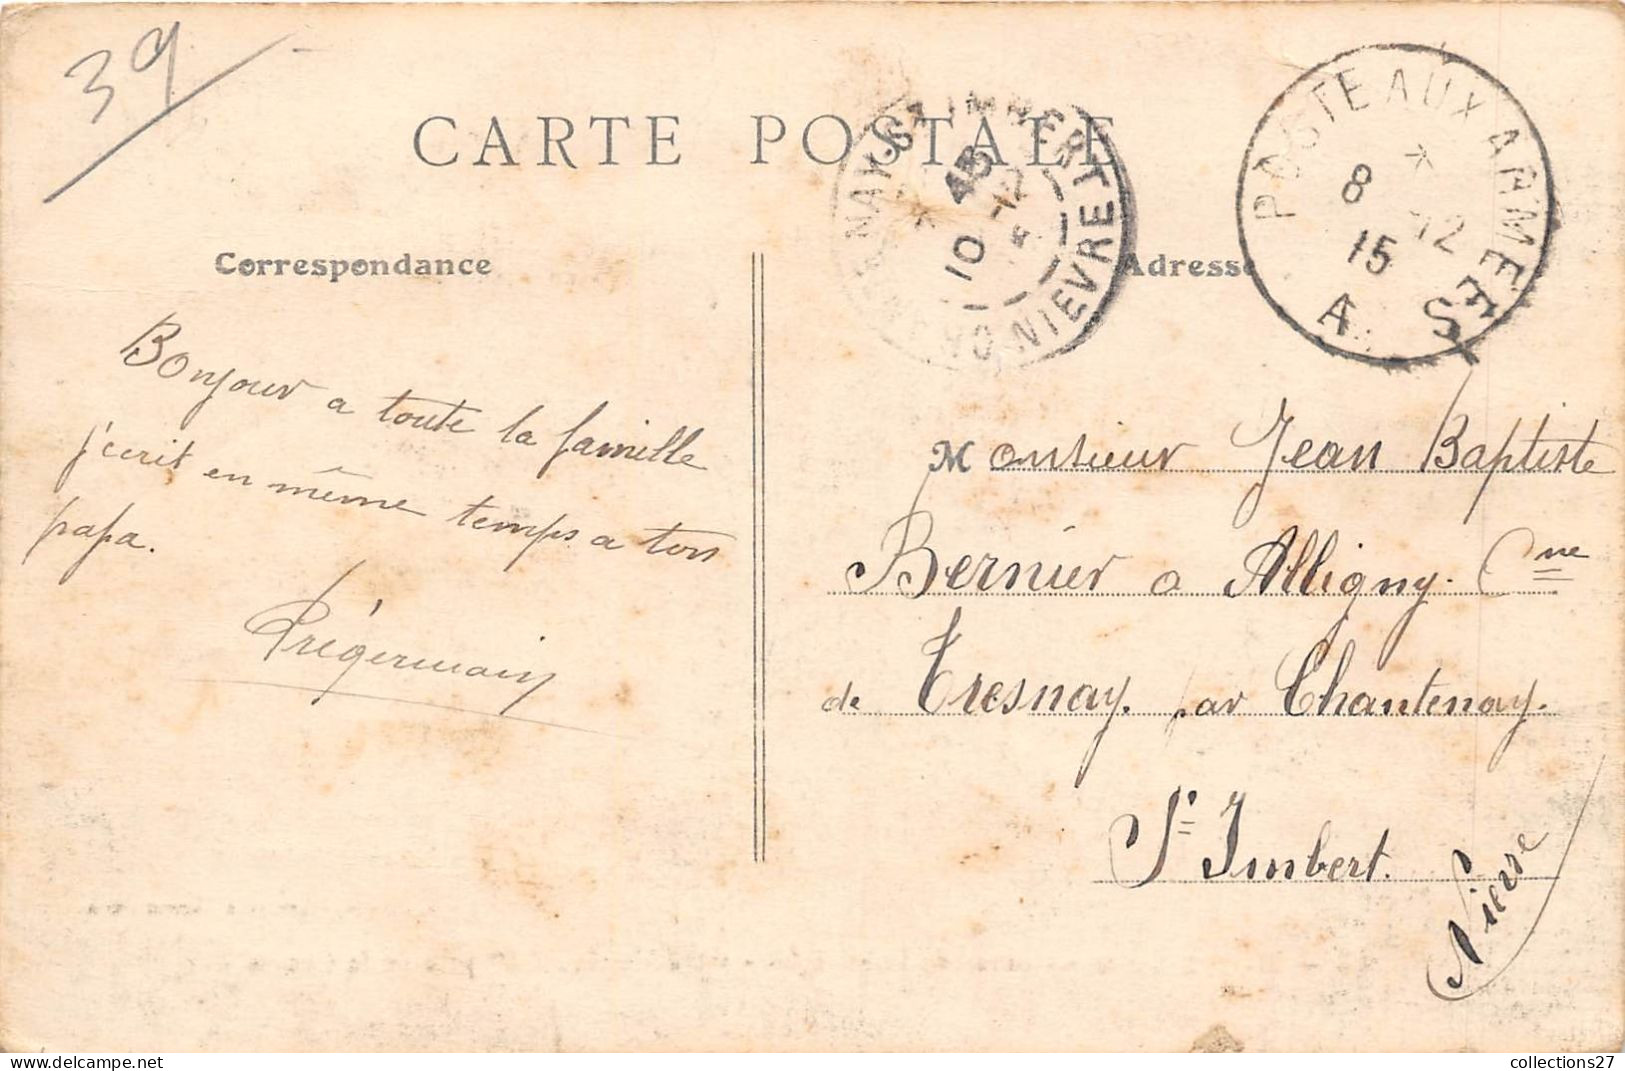 39
CARTE POSTALE
NAY-ST IMBERT
10 -12
NIEVRE
POSTE AUX ARMEES
*
8 -12
15
A. S
Correspondance
Adresse
Bonjour a toute la famille
j'ecrit en même temps a ton
papa.
Prégermain
Monsieur Jean Baptiste
Bernier a Alligny. Cne
de Tresnay. par Chantenay.
St Imbert.
Nièvre
collections27